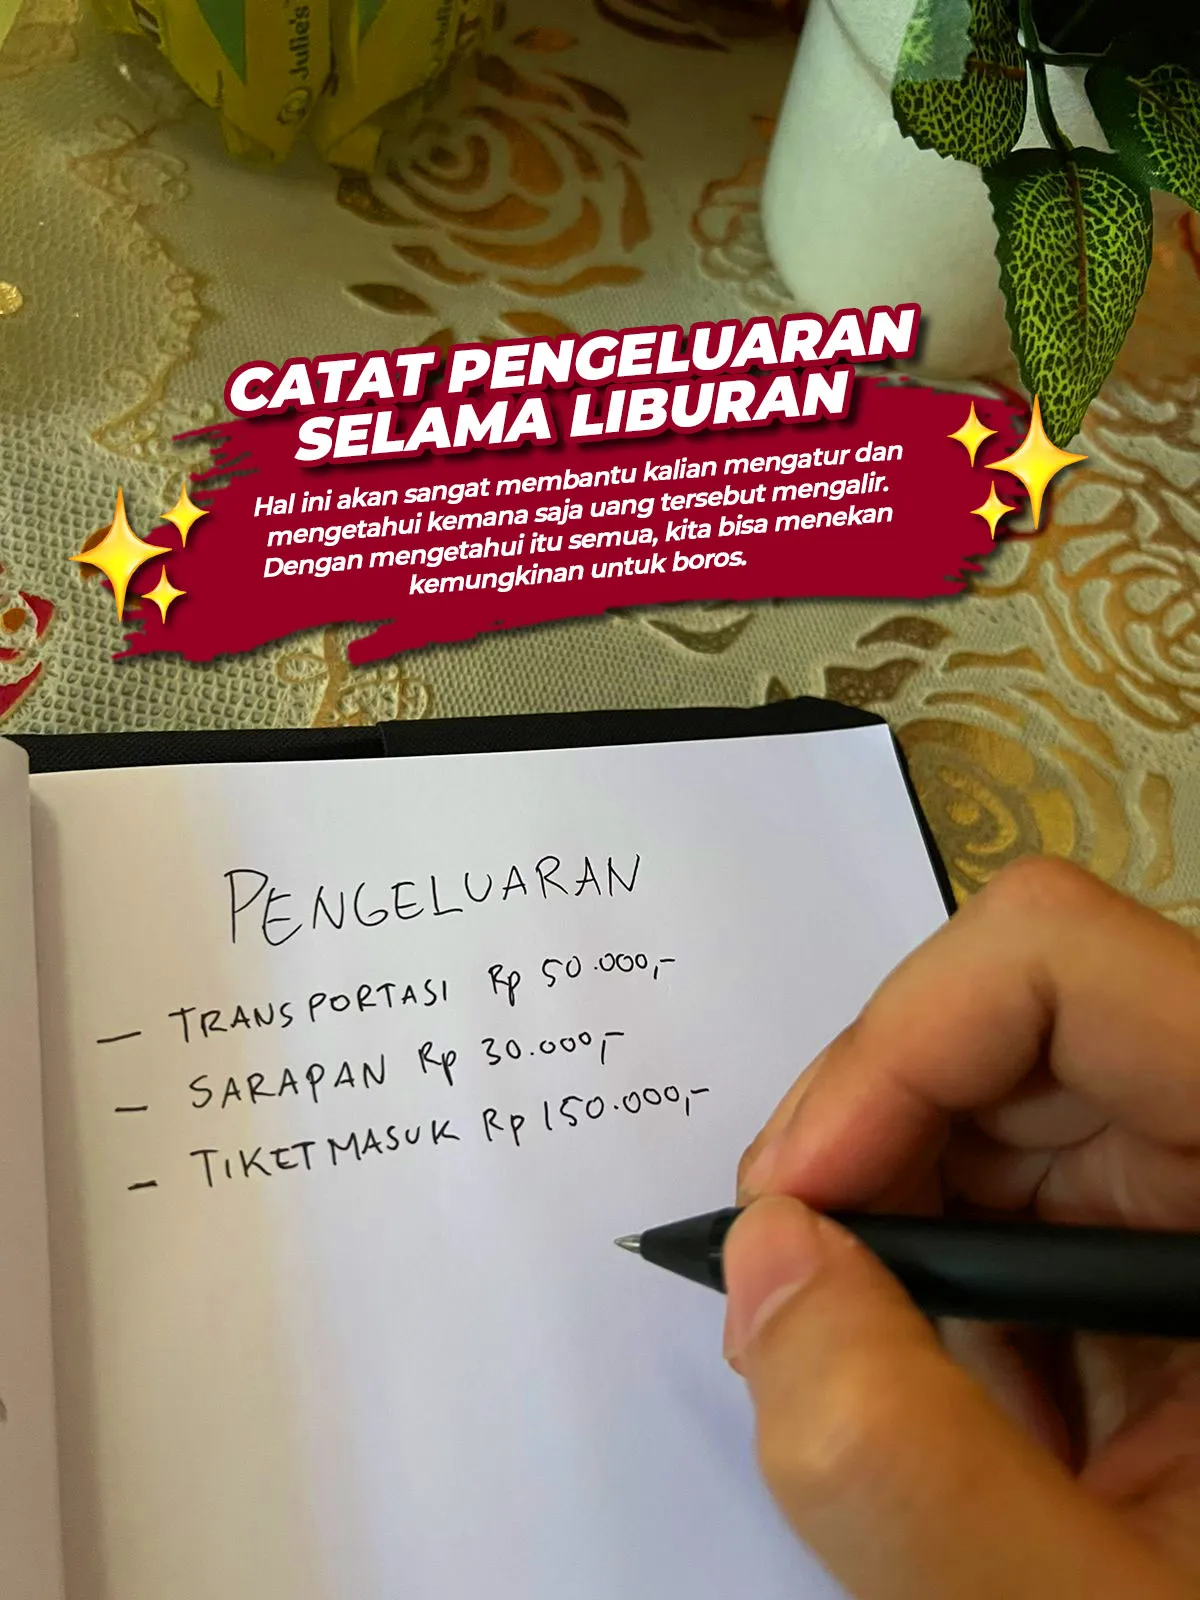 Julie's
CATAT PENGELUARAN
SELAMA LIBURAN
Hal ini akan sangat membantu kalian mengatur dan
mengetahui kemana saja uang tersebut mengalir.
Dengan mengetahui itu semua, kita bisa menekan
kemungkinan untuk boros.
PENGELUARAN
— TRANSPORTASI Rp 50.000,-
— SARAPAN Rp 30.000,-
— TIKET MASUK Rp 150.000,-